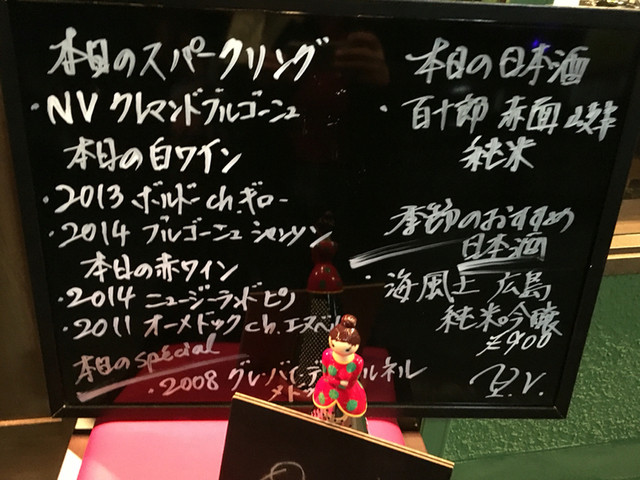 本日のスパークリング
・NV クレマンドブルゴーニュ
本日の白ワイン
・2013 ボルドー ch.ギロー
・2014 ブルゴーニュ シャルドン
本日の赤ワイン
・2014 ニュージーランド ピノ
・2011 オーメドック ch.
本日のspecial
・2008
本日の日本酒
・百十郎 赤面
純米
季節のおすすめ
日本酒
・海風土 広島
純米吟醸
900